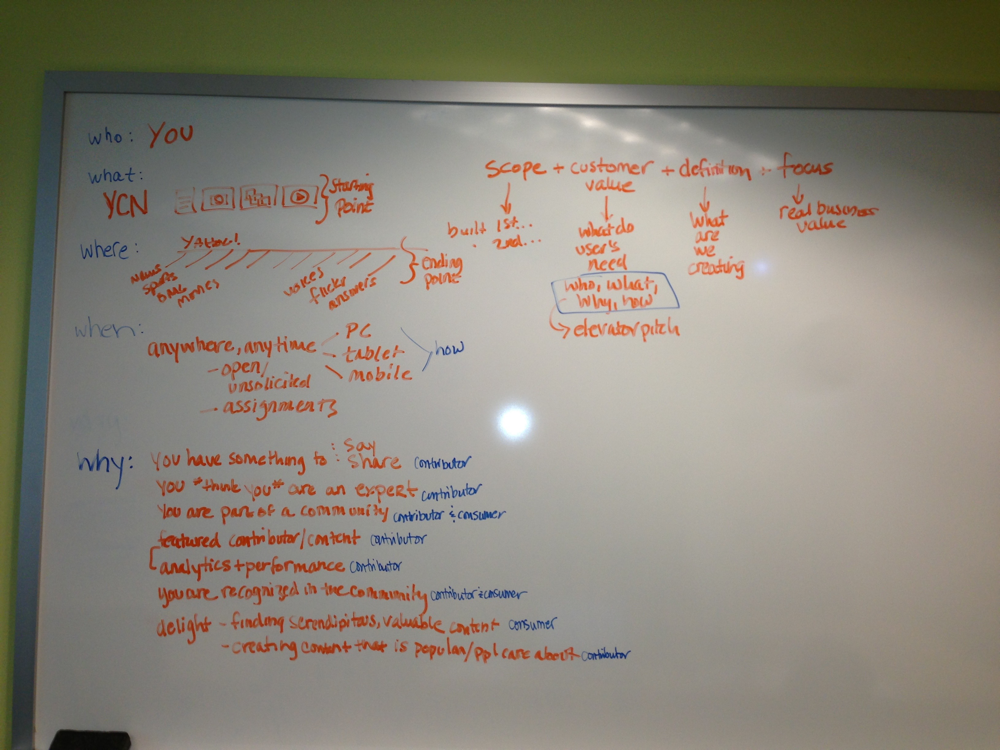 who: YOU
what:
YCN
Starting
Point
where:
YAHOO!
news
sports
omg
movies
voices
flickr
answers
Ending
Point
when:
anywhere, anytime
- PC
- tablet
- mobile
how
- open/
unsolicited
- assignments
why:
You have something to : say
: share contributor
You *think you* are an expert contributor
You are part of a community contributor & consumer
featured contributor/content contributor
analytics + performance contributor
you are recognized in the community contributor & consumer
delight - finding serendipitous, valuable content consumer
- creating content that is popular/ppl care about contributor
scope + customer + definition + focus
value
built 1st...
2nd...
what do
user's
need
who, what,
why, how
elevator pitch
what
are
we
creating
real business
value